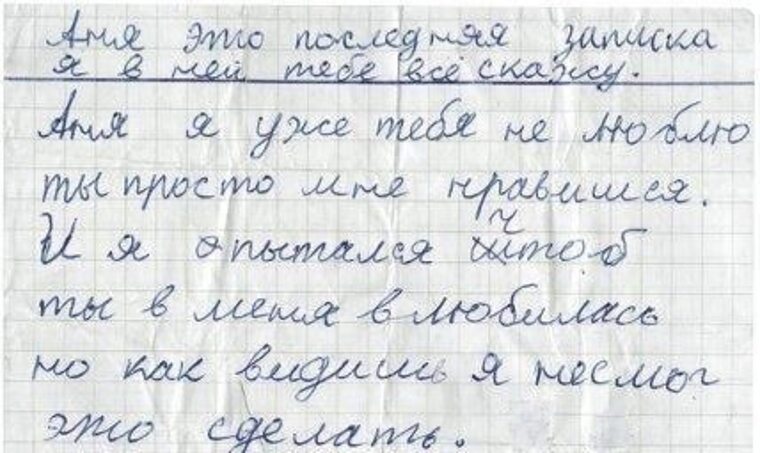 Аня это последняя записка
я в ней тебе всё скажу.
Аня я уже тебя не люблю
ты просто мне нравишся.
И я опытался чтоб
ты в меня влюбилась
но как видишь я несмог
это сделать.